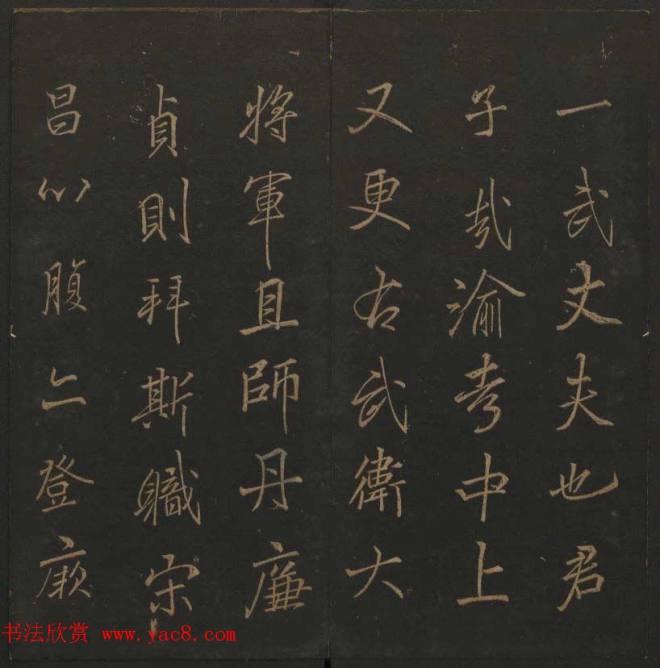 一武丈夫也君
子哉渝考中上
又更右武衛大
將軍且師丹廉
貞則拜斯軄宋
昌心腹亦登厥
书法欣赏 www.yac8.com